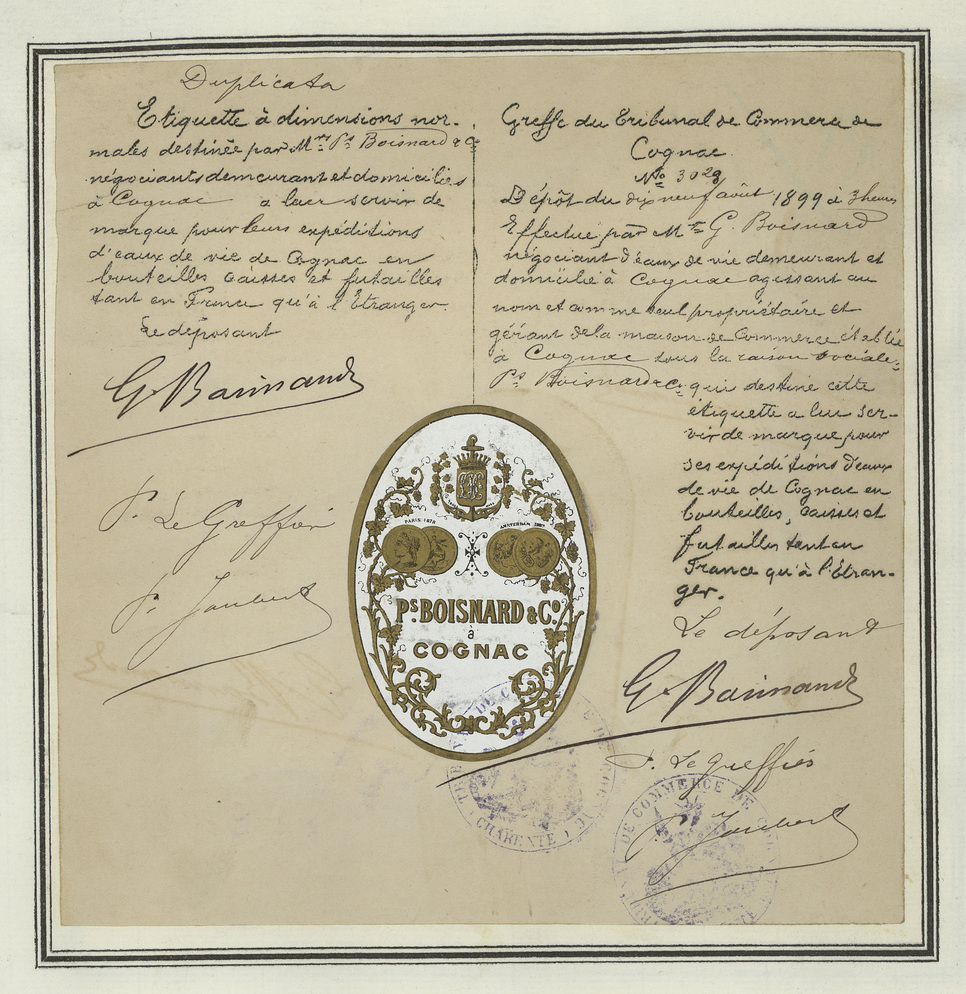 Duplicata
Etiquette à dimensions nor-
males destinée par M.rs P.s Boisnard & C.o
négociants demeurant et domiciliés
à Cognac à leur servir de
marque pour leurs expéditions
d'eaux de vie de Cognac en
bouteilles caisses et futailles
tant en France qu'à l'Etranger.
Le déposant
G. Boisnard
P. Le Greffier
P. Joubert
Greffe du Tribunal de Commerce de
Cognac.
No 3029
Dépôt du dix neuf août 1899 à 3 heures
Effectué par M.r G. Boisnard
négociant d'eaux de vie demeurant et
domicilié à Cognac agissant au
nom et comme seul propriétaire et
gérant de la maison de Commerce établie
à Cognac sous la raison sociale
P.s Boisnard & C.o qui destine cette
étiquette a lui ser-
vir de marque pour
ses expéditions d'eaux
de vie de Cognac en
bouteilles, caisses et
futailles tant en
France qu'à l'Étran-
ger.
Le déposant
G. Boisnard
P. Le Greffier
P. Joubert
PARIS 1878
AMSTERDAM
Ps. BOISNARD & Co.
à
COGNAC
CHARENTE
DE COMMERCE DE